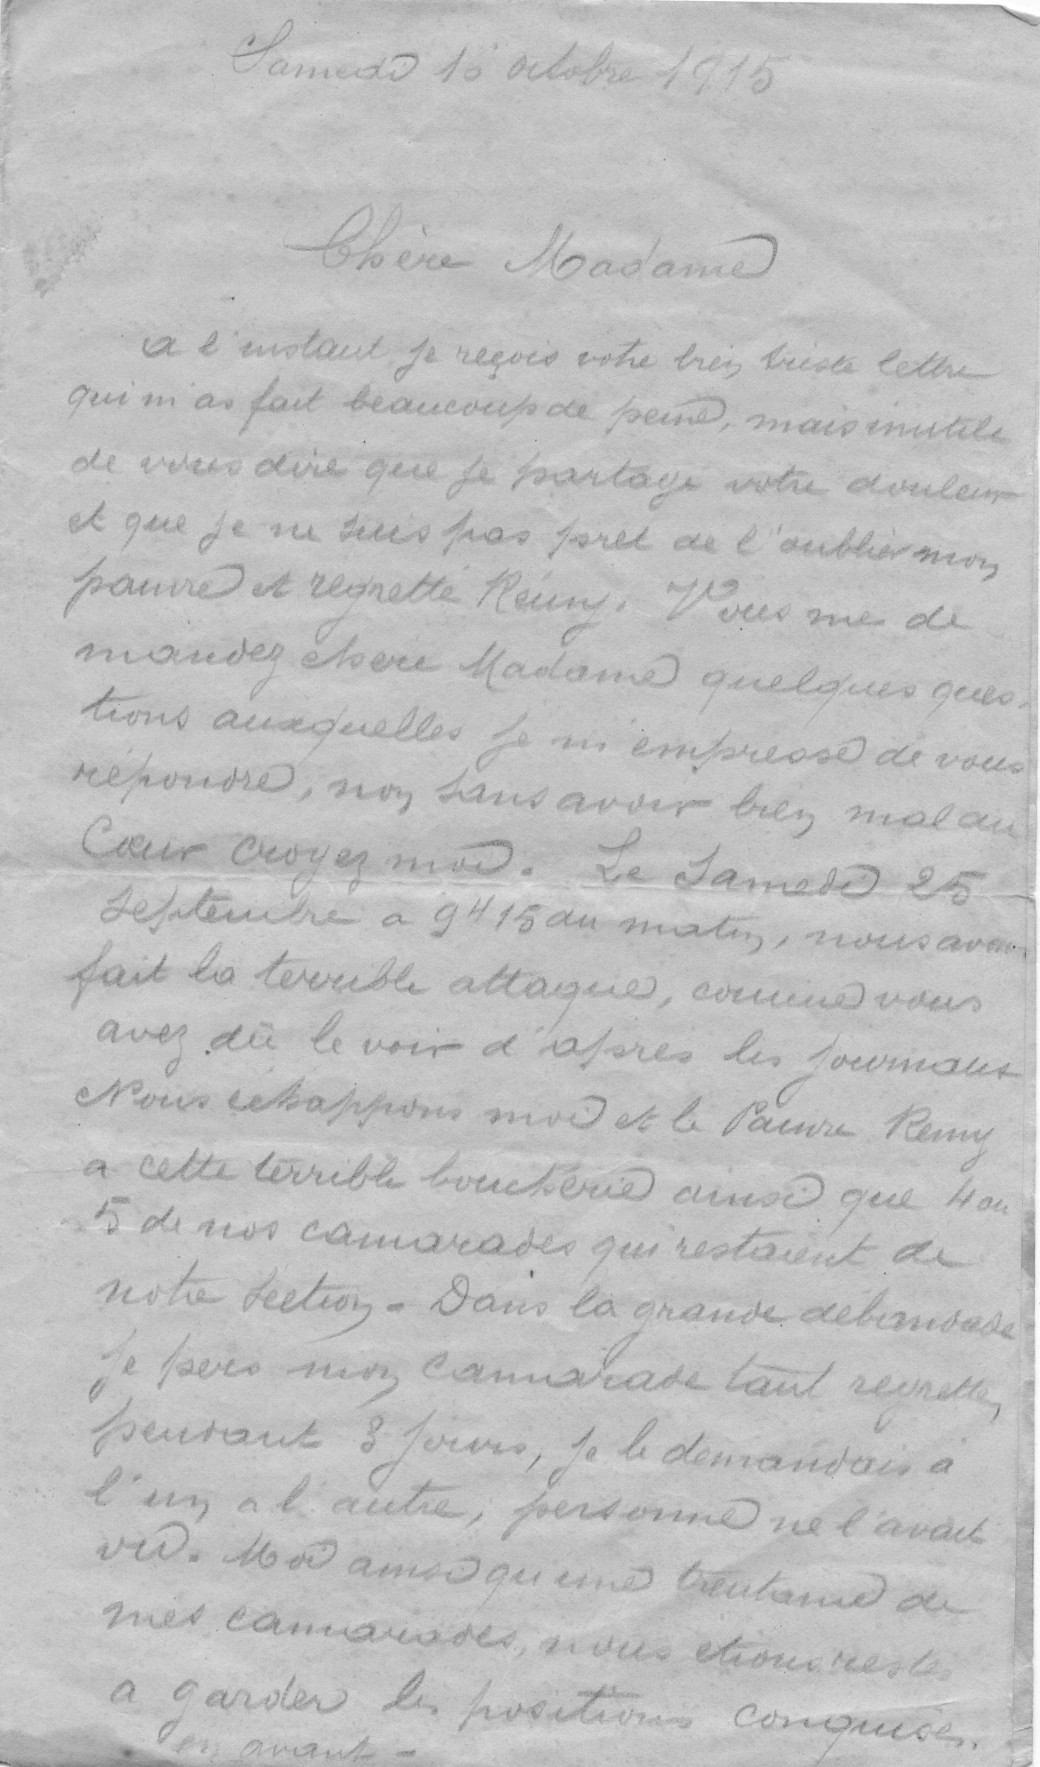 Samedi 16 octobre 1915
Chère Madame
a l'instant je reçois votre bien triste lettre
qui m'as fait beaucoup de peine, mais inutile
de vous dire que je partage votre douleur
et que je ne suis pas pret de l'oublier mon
pauvre et regretté Rémy. Vous me de
mandez chere Madame quelques ques-
tions auxquelles je m'empresse de vous
répondre, non sans avoir bien mal au
Cœur croyez moi. Le Samedi 25
septembre a 9H15 du matin, nous avons
fait la terrible attaque, comme vous
avez dû le voir d'après les journaux
Nous échappons moi et le Pauvre Remy
a cette terrible boucherie ainsi que 4 ou
5 de nos camarades qui restaient de
notre section - Dans la grande débandade
je pers mon camarade tant regretté,
pendant 3 jours, je le demandais à
l'un a l'autre, personne ne l'avait
vu. Moi ainsi qu'une trentaine de
mes camarades, nous etions restés
a garder les positions conquises.
en avant -